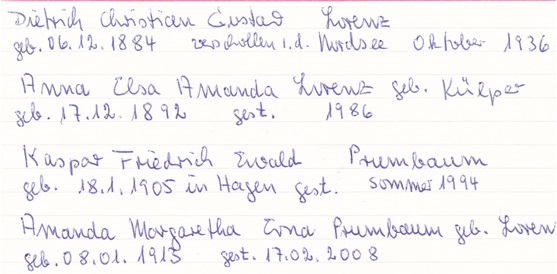 Dietrich Christian Gustav Lorenz
geb. 06.12.1884 verschollen i.d. Nordsee Oktober 1936
Anna Elsa Amanda Lorenz geb. Külper
geb. 17.12.1892 gest. 1986
Kaspar Friedrich Ewald Prumbaum
geb. 18.1.1905 in Hagen gest. Sommer 1994
Amanda Margaretha Erna Prumbaum geb. Loren
geb. 08.01.1913 gest. 17.02.2008